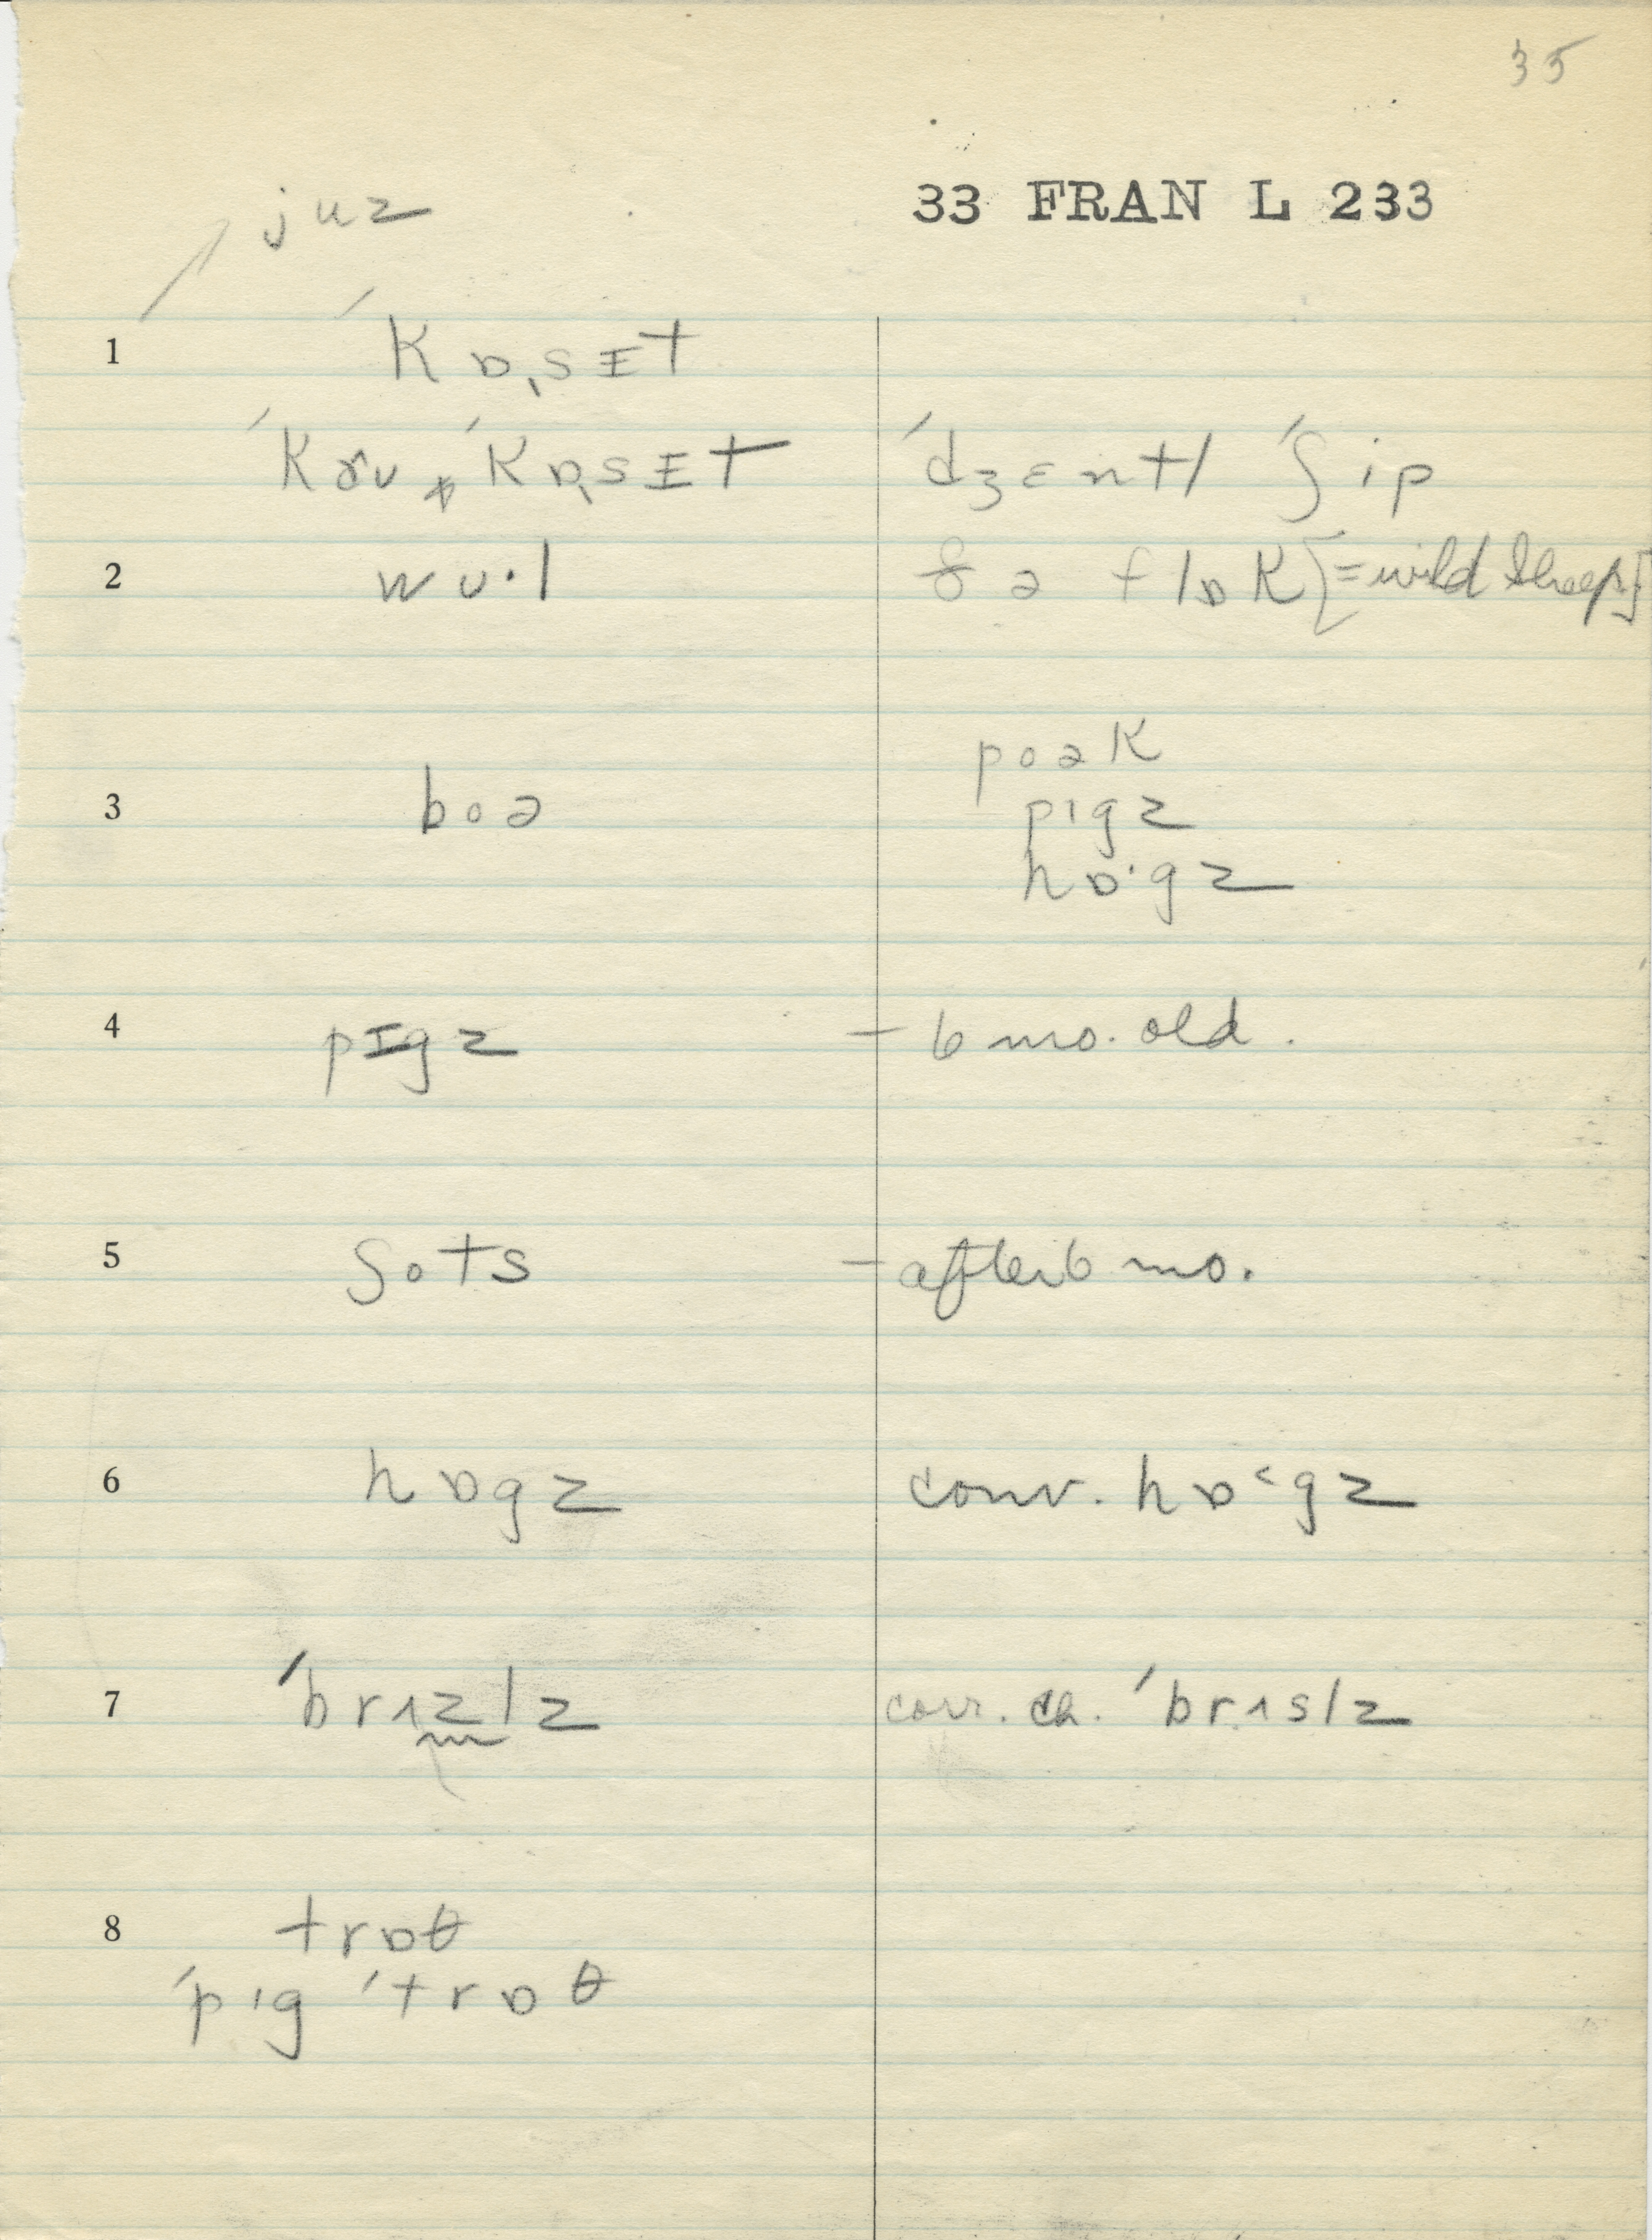 35
33 FRAN L 233
juz
1 ˈkɒˌsɪt
ˈkɒˌsɪt ˈdʒɛntl ˈʃip
2 wu·l flɒk [= wild sheep]
poək
3 boə pɪgz
hɒ·gz
4 pɪgz – 6 mo. old.
5 ʃots – after 6 mo.
6 hɒgz conv. hɒ˂gz
7 ˈbrɪzlz ˈbrɪslz
8 trɒθ
ˈpɪg ˈtrɒθ